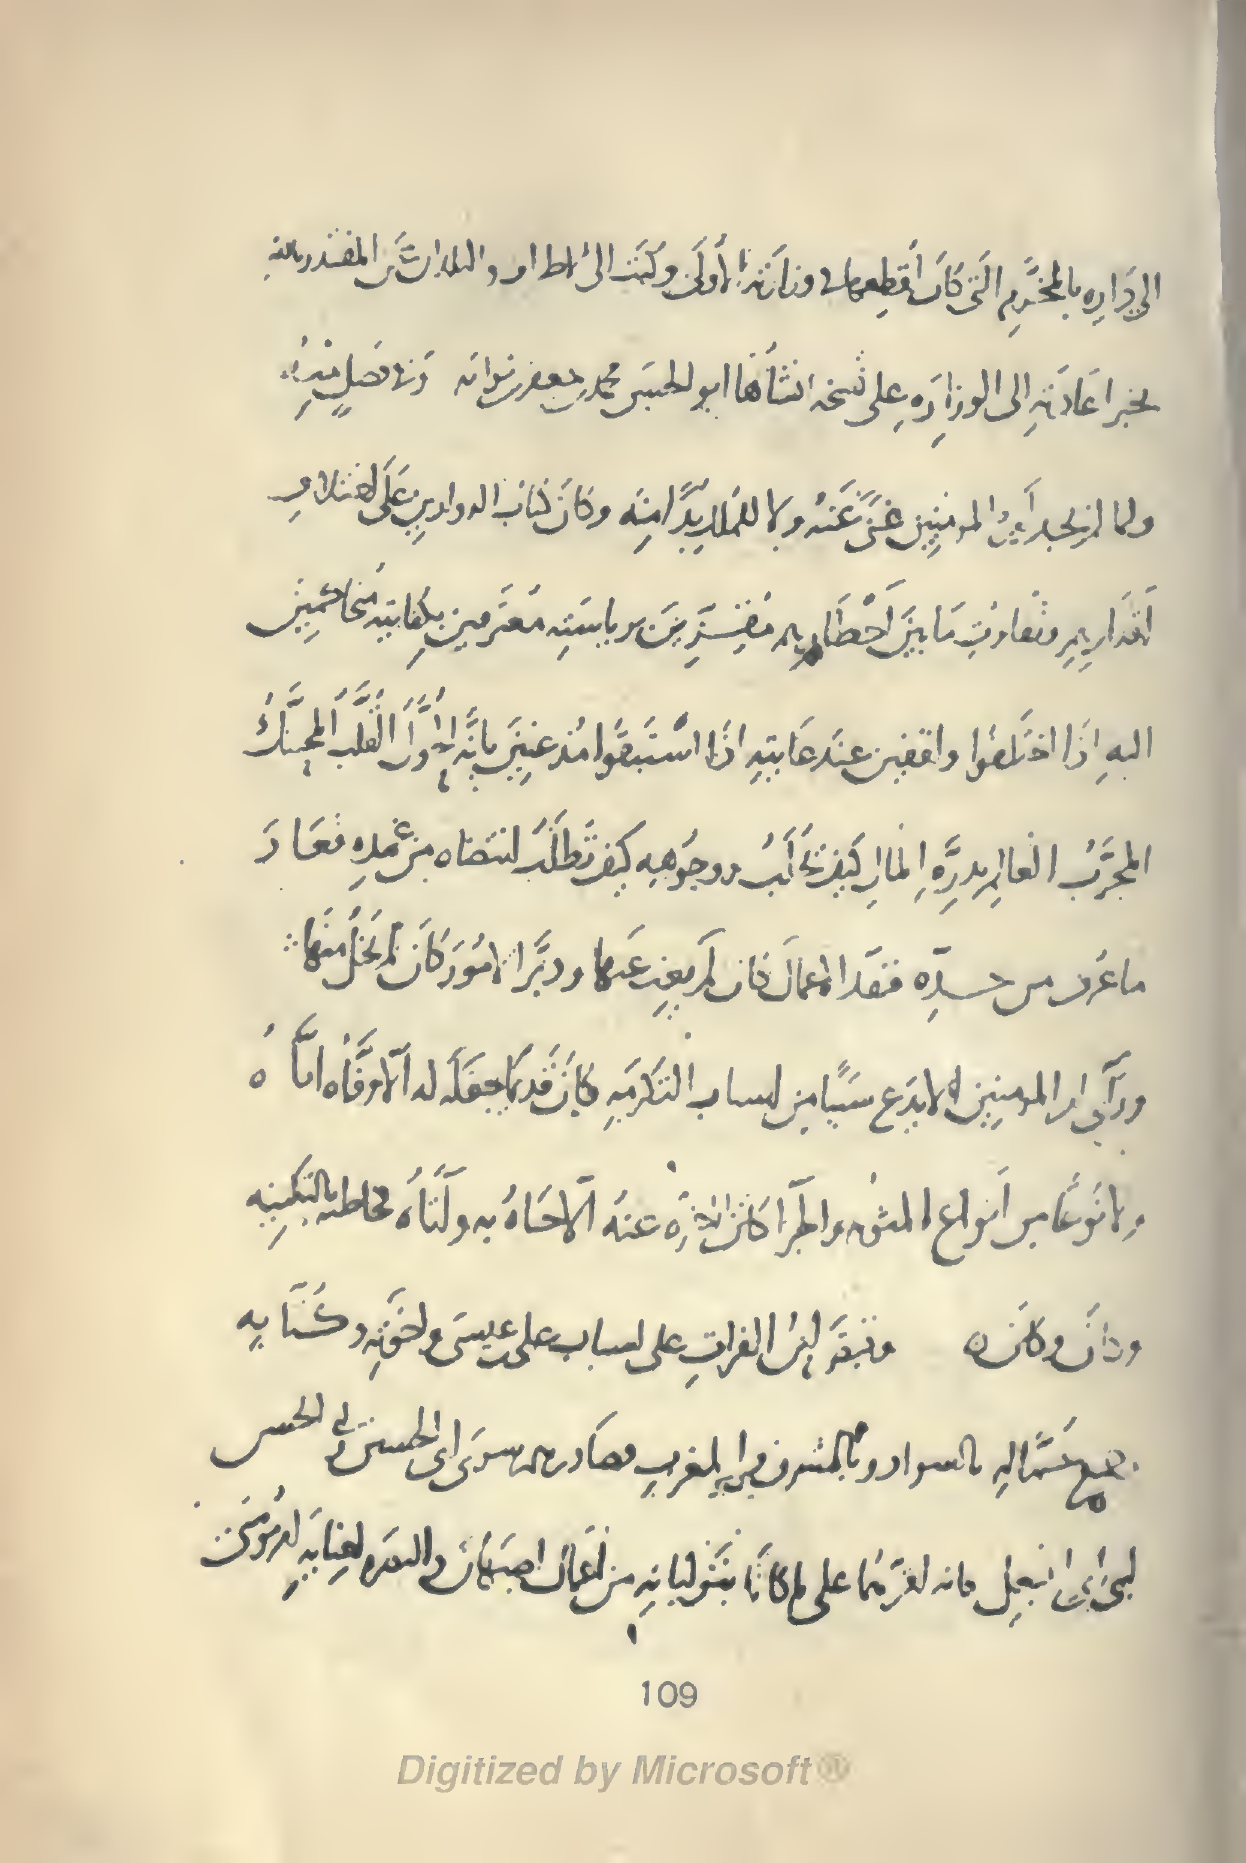 الى دَارِه بالمخَرِّم التَى كَانَ أقطِعها فى وزارَتِه الأُولَى وكتَب الى في البلدان عَن المقتدر بالله
بخبر اعَادَتِه الى الوزارَهِ على نُسخه انشأَها ابو الحسَن محمد بن جعفر بن ثوابه فصَلٍ منهَا
ولما لم يجد أميرُ المومنِين غِنًى عَنهُ ولا للمُلكِ بُدًّا مِنه وكانَ كُتابُ الدواوينِ عَلى اختلافِ
أقدَارِهِم وتفاوُتِ مَا بينَ أخْطَارِهم مُقِرِّينَ برياسَتِه معتَرِفين بكِفايتِه مُتحاكمِينَ
اليهِ اذَا اختَلفوا واقفين عندَ غَايتِه اذَا اسْتَبقَوا مُذعنِينَ بانَّه الحُوَّلُ القُلَّبُ المحنَّكُ
المجرَّبُ العالِم بدِرَّهِ المالِ كَيفَ تُحلَبُ ووجُوهِه كيف تُطلَبُ انتضاه من غمدِه فعَادَ
ما عُرف من حدِّه فنفَّذ الاعمالَ كان لم يغِب عَنها ودبَّر الامُورَ كَأن لم يَخلُ منها
ورَأَى امير المومنين ألا يدَع سَبَبًا من اسباب التَكرمَهِ كانَ قَديمًا جعَلَه له الا وَفَّاه ايَّاهُ
ولا نَوعًا من أنواع المثوبه والجزا كان عنهُ الا حَبَاهُ به وآتَاهُ فخاطبه بالتكنِيه
وكان وكان وقبَضَ ابنُ الفراتِ على اسباب على بن عيسَى واخوَتِه وكُتَّابِه
وجميع عُمَّالِه بالسواد وبالمشرِق والمغربِ وصَادرهم سوَى ابى الحسين وابى الحسن
ابنى ابى البغل فانه اقرَّهُما على ما كانَا يتَولَّيانِه من اعمَال اصبَهان والبصره لعنايَهِ ام موسَى
109
Digitized by Microsoft®